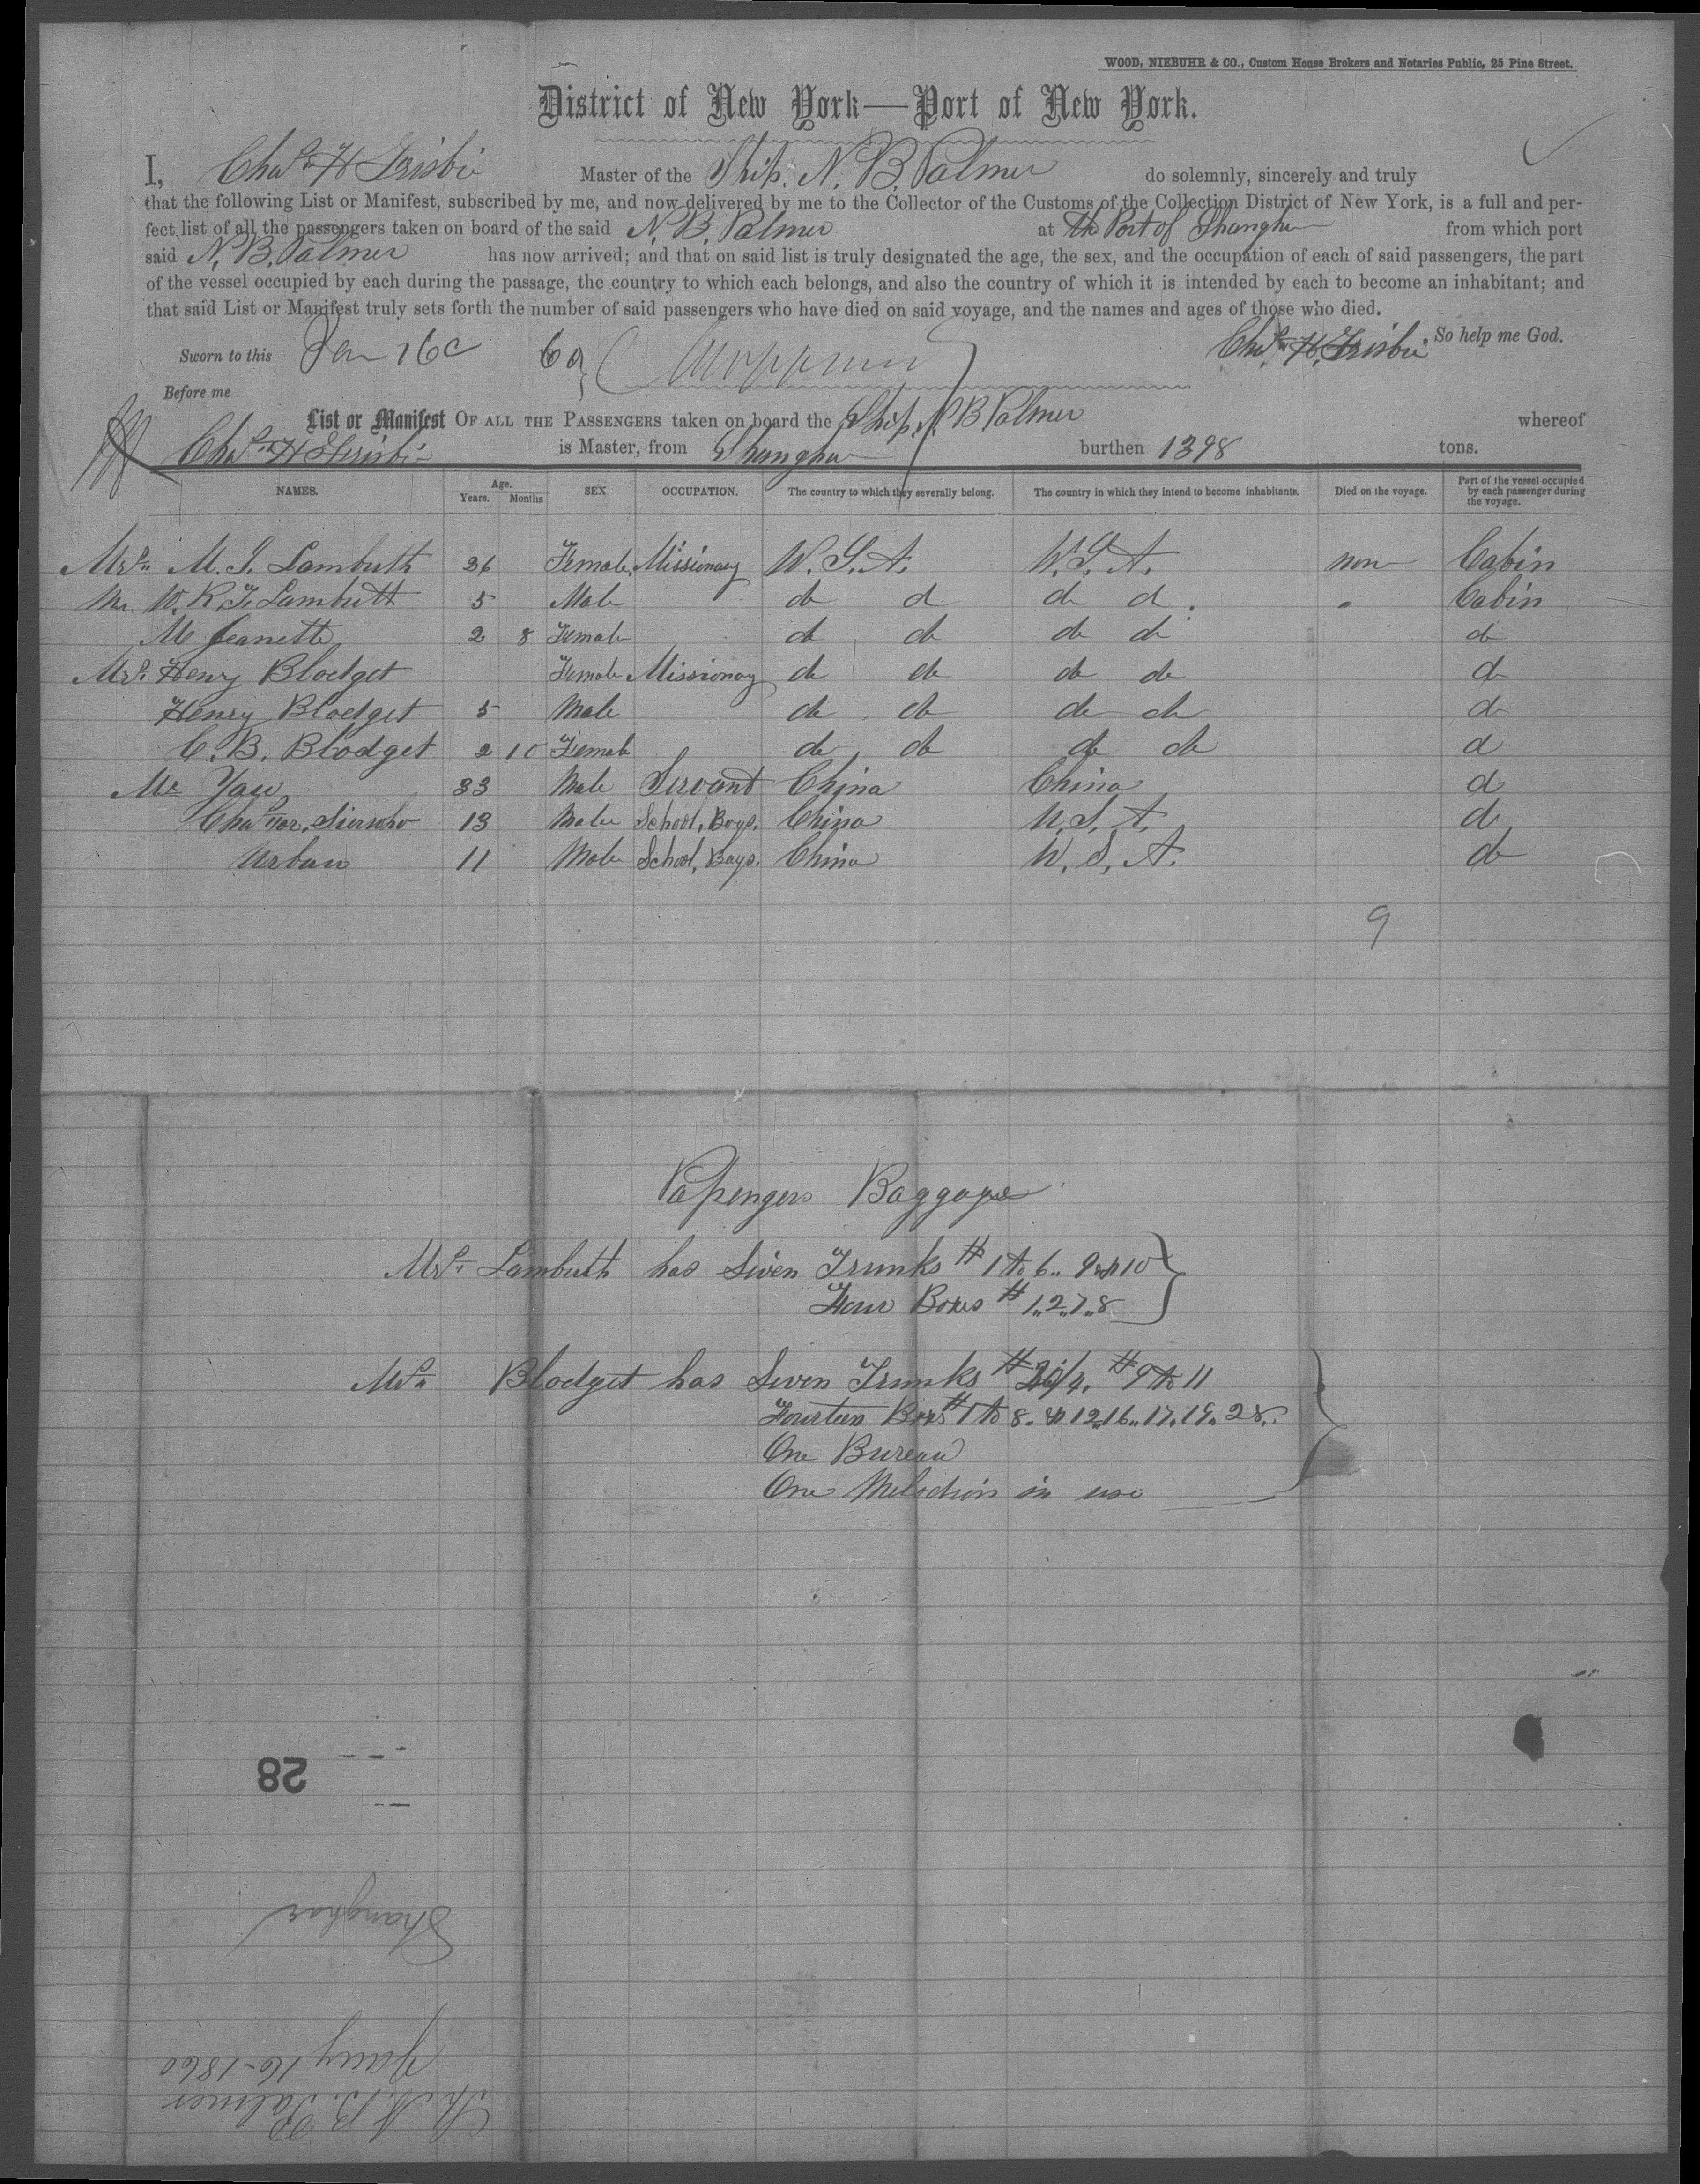 WOOD, NIEBUHR & CO., Custom House Brokers and Notaries Public, 25 Pine Street.
District of New York—Port of New York.
I, Chas. H Frisbie Master of the Ship. N. B. Palmer do solemnly, sincerely and truly
that the following List or Manifest, subscribed by me, and now delivered by me to the Collector of the Customs of the Collection District of New York, is a full and per-
fect list of all the passengers taken on board of the said N. B. Palmer at the Port of Shanghae from which port
said N. B. Palmer has now arrived; and that on said list is truly designated the age, the sex, and the occupation of each of said passengers, the part
of the vessel occupied by each during the passage, the country to which each belongs, and also the country of which it is intended by each to become an inhabitant; and
that said List or Manifest truly sets forth the number of said passengers who have died on said voyage, and the names and ages of those who died.
So help me God.
Sworn to this Jan 16 60 Chas. H. Frisbie
Before me
List or Manifest OF ALL THE PASSENGERS taken on board the Ship. N. B Palmer whereof
Chas. H Frisbie is Master, from Shanghae burthen 1398 tons.
NAMES. Age. Years. Months SEX OCCUPATION. The country to which they severally belong. The country in which they intend to become inhabitants. Died on the voyage. Part of the vessel occupied by each passenger during the voyage.
Mrs. M. I. Lambuth 26 Female Missionary U. S. A. U. S. A. non Cabin
Mr. W. R. T. Lambuth 5 Male do do do do " Cabin
M Jeanette 2 8 Female do do do do do
Mrs. Henry Blodget Female Missionary do do do do do
Henry Blodget 5 Male do do do do do
C. B. Blodget 2 10 Female do do do do do
Mr Yau 33 Male Servant China China do
13 Male School, Boys. China U. S. A. do
Urban 11 Male School, Boys. China U. S. A. do
9
Passengers Baggage
Mrs. Lambuth has Seven Trunks # 1 to 6 " 9 & 10
Four Boxes # 1 " 2 " 7 " 8
Mrs. Blodget has Seven Trunks # # 9 to 11
Fourteen Boxes # 1 to 8. & 12 " 16 " 17 " 19 " 28.
One Bureau
One Melodion in use
28
Shanghae
Jany 16 - 1860
Sh. N. B. Palmer